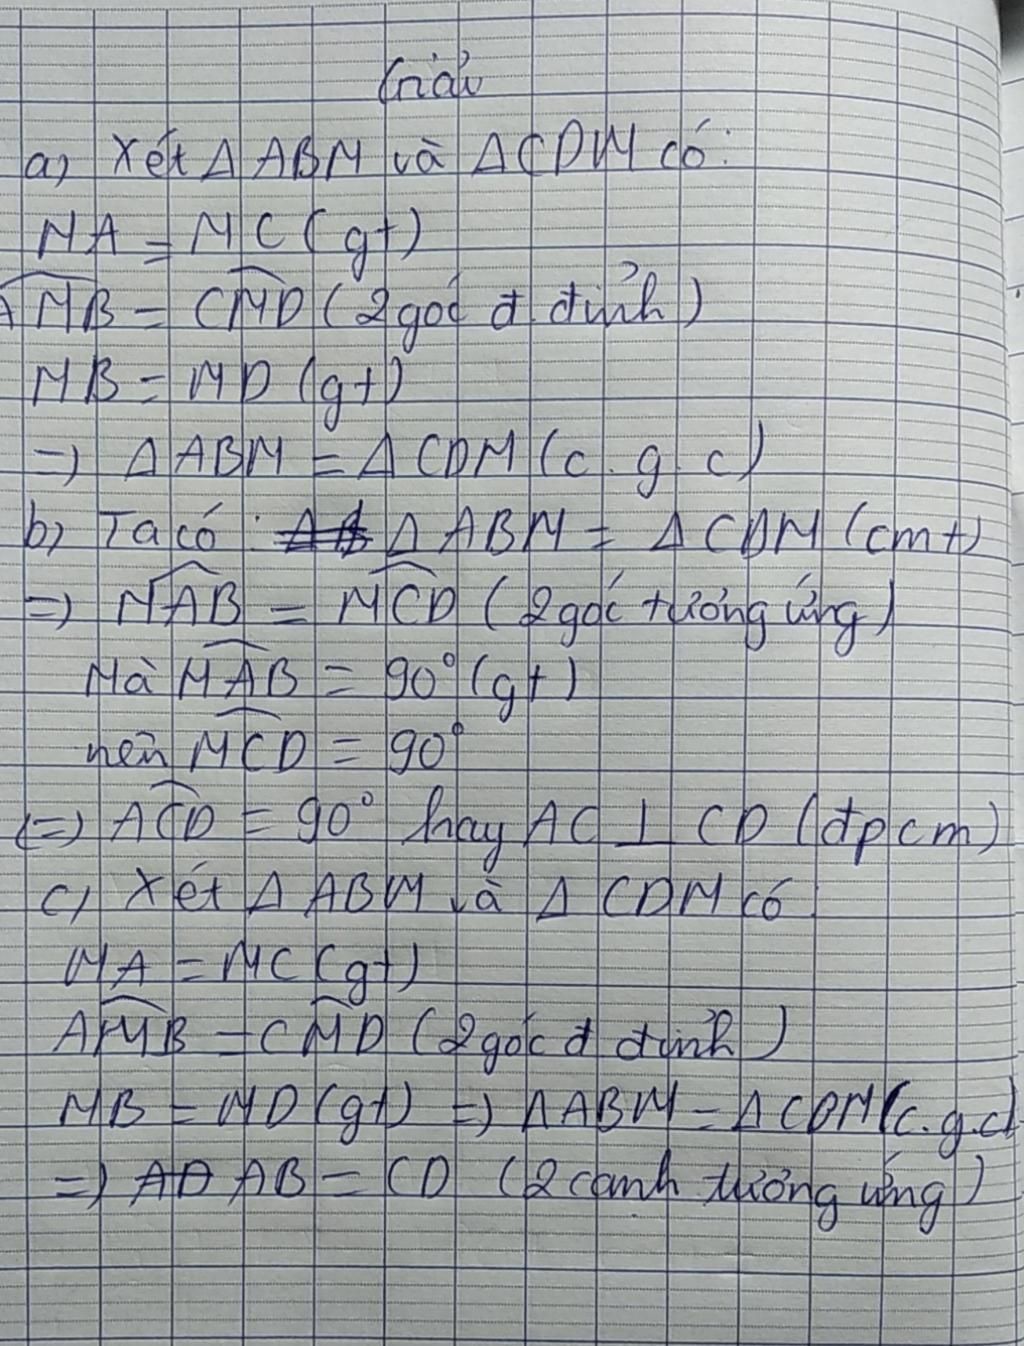 Giải
a) Xét Δ ABM và ΔCDM có:
MA = MC (gt)
AMB = CMD (2 góc đ. đỉnh)
MB = MD (gt)
=) Δ ABM = Δ CDM (c. g. c)
b) Ta có: Δ ABM = Δ CDM (cmt)
=) MAB = MCD (2 góc tương ứng)
Mà MAB = 90° (gt)
nên MCD = 90°
(=) ACD = 90° hay AC ⊥ CD (đpcm)
c) Xét Δ ABM và Δ CDM có
MA = MC (gt)
AMB = CMD (2 góc đ. đỉnh)
MB = MD (gt) =) ΔABM = Δ CDM (c.g.c)
=) AB = CD (2 cạnh tương ứng)